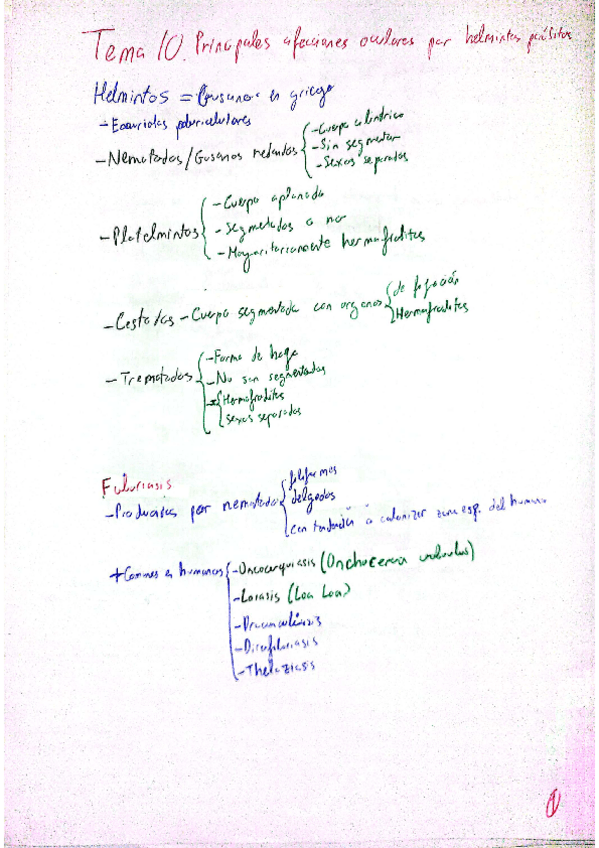 Tema 10. Principales afecciones oculares por helmintos parásitos
Helmintos = Gusano en griego
- Eucariotas pluricelulares
- Nematodos/Gusanos redondos
- Cuerpo cilíndrico
- Sin segmentar
- Sexos separados
- Platelmintos
- Cuerpo aplanado
- Segmetados o no
- Mayoritariamente hermafroditas
- Cestodos - Cuerpo segmentado con organos
de fijación
Hermafroditas
- Trematodos
- Forma de hoja
- No son segmentados
- Hermafroditas
sexos separados
Filariasis
- Producidas por nematodos
filiformes
delgados
con tendencia a colonizar zona esp. del humano
+ Comunes en humanos
- Oncocerquiasis (Onchocerca volvulus)
- Loiasis (Loa Loa)
- Dracunculiasis
- Dirofilariasis
- Thelaziasis
1